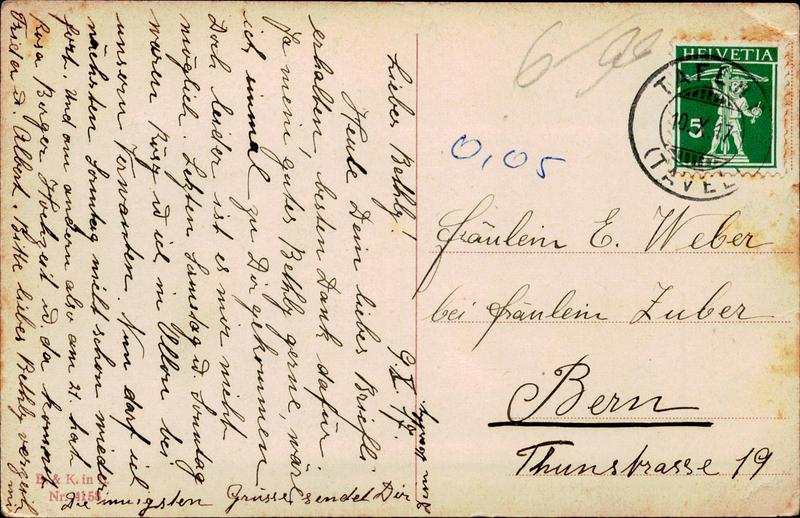 Lieber Bethly!
9. X. 17.
Heute Dein liebes Briefli
erhalten, besten Dank dafür
Ja mein gutes Bethly gerne, wär
ich einmal zu Dir gekommen
Doch leider ist es mir nicht
möglich. Letzten Samstag u. Sonntag
waren Rösy u ich in bei
unsern Verwanten. Nun darf ich
nächsten Sonntag nicht schon wieder
fort. Und am andern also am 21. hat
Rosa Burger Hochzeit u da kommt
Frieda u. Albert. Bitte liebes Bethly verzeih mir
Die innigsten Grüsse sendet Dir
Fräulein E. Weber
bei Fräulein Zuber
Bern
Thunstrasse 19
0,05
HELVETIA
5
TAFERS
10. X. 17
(TAVEL)
& K. in
Nr. 4158